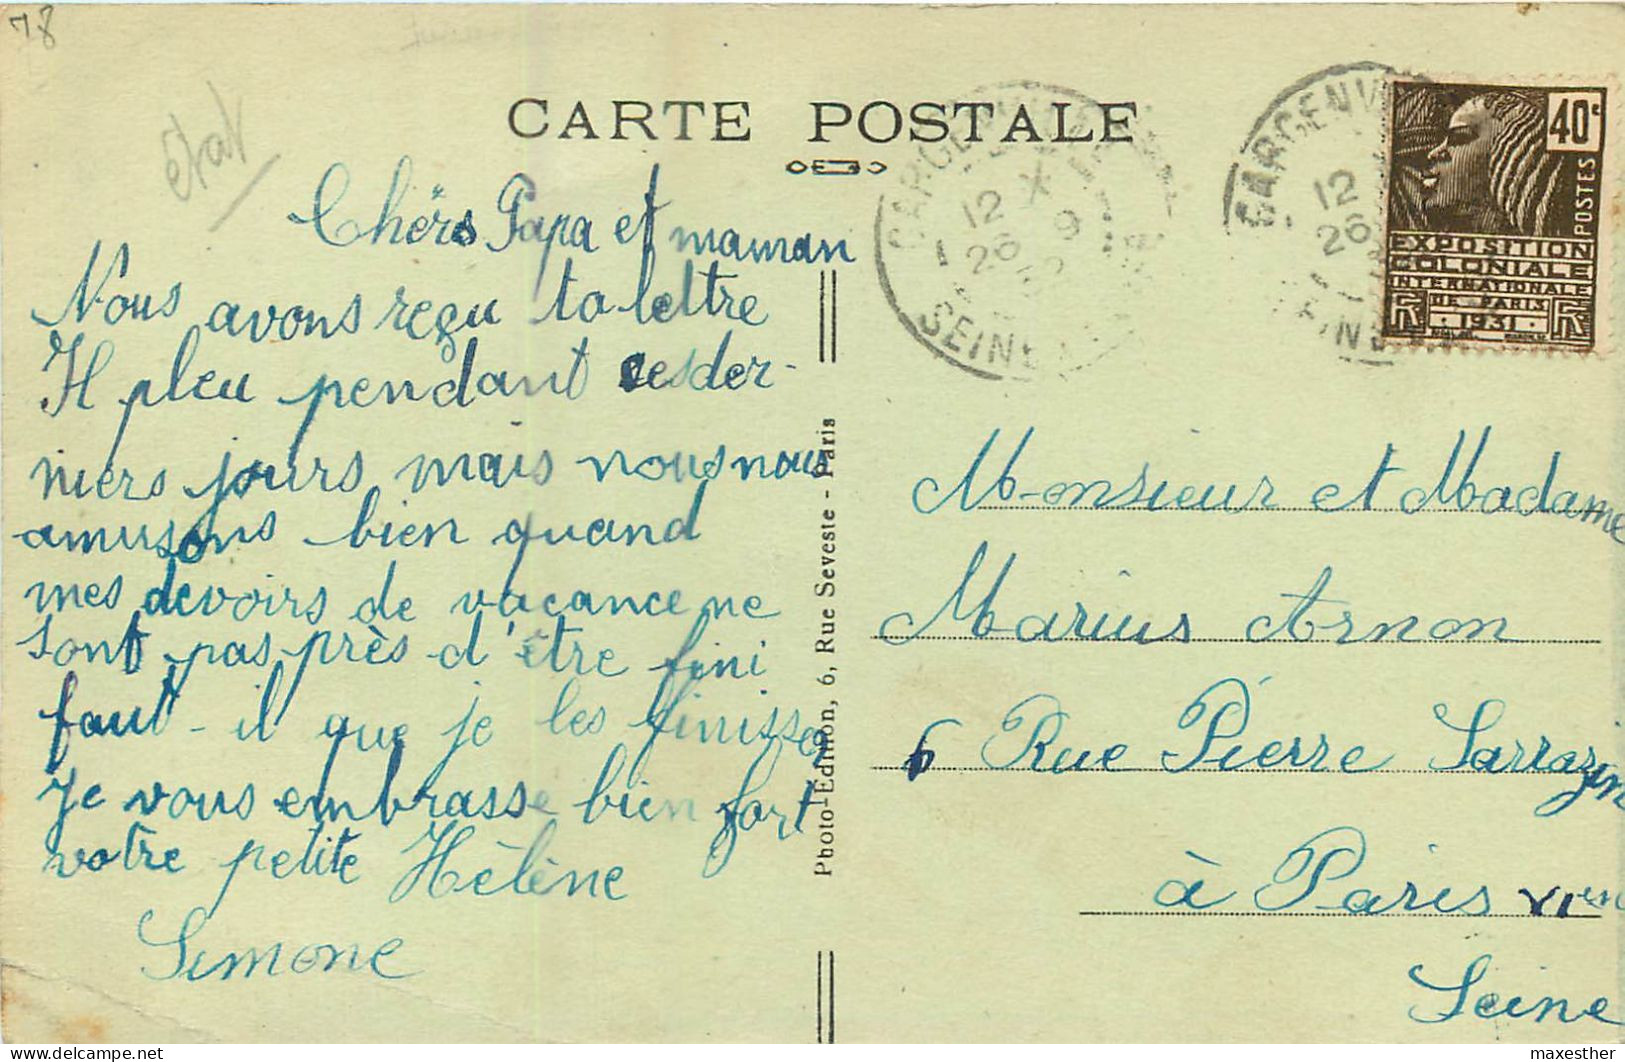 78
état
CARTE POSTALE
Chèrs Papa et maman
Nous avons reçu ta lettre
Il pleu pendant ces der-
niers jours mais nous nous
amusons bien quand
mes devoirs de vacance ne
sont pas près d'être fini
faut-il que je les finisse
Je vous embrasse bien fort
votre petite Hélène
Simone
Photo-Edition, 6, Rue Seveste - Paris
GARGENV
12
26 9
32
SEINE
GARGENV
12
26
40c
POSTES
EXPOSITION
COLONIALE
INTERNATIONALE
DE PARIS
RF 1931 RF
Monsieur et Madame
Marius Arnon
6 Rue Pierre Sarrazin
à Paris VIem
Seine
maxesther